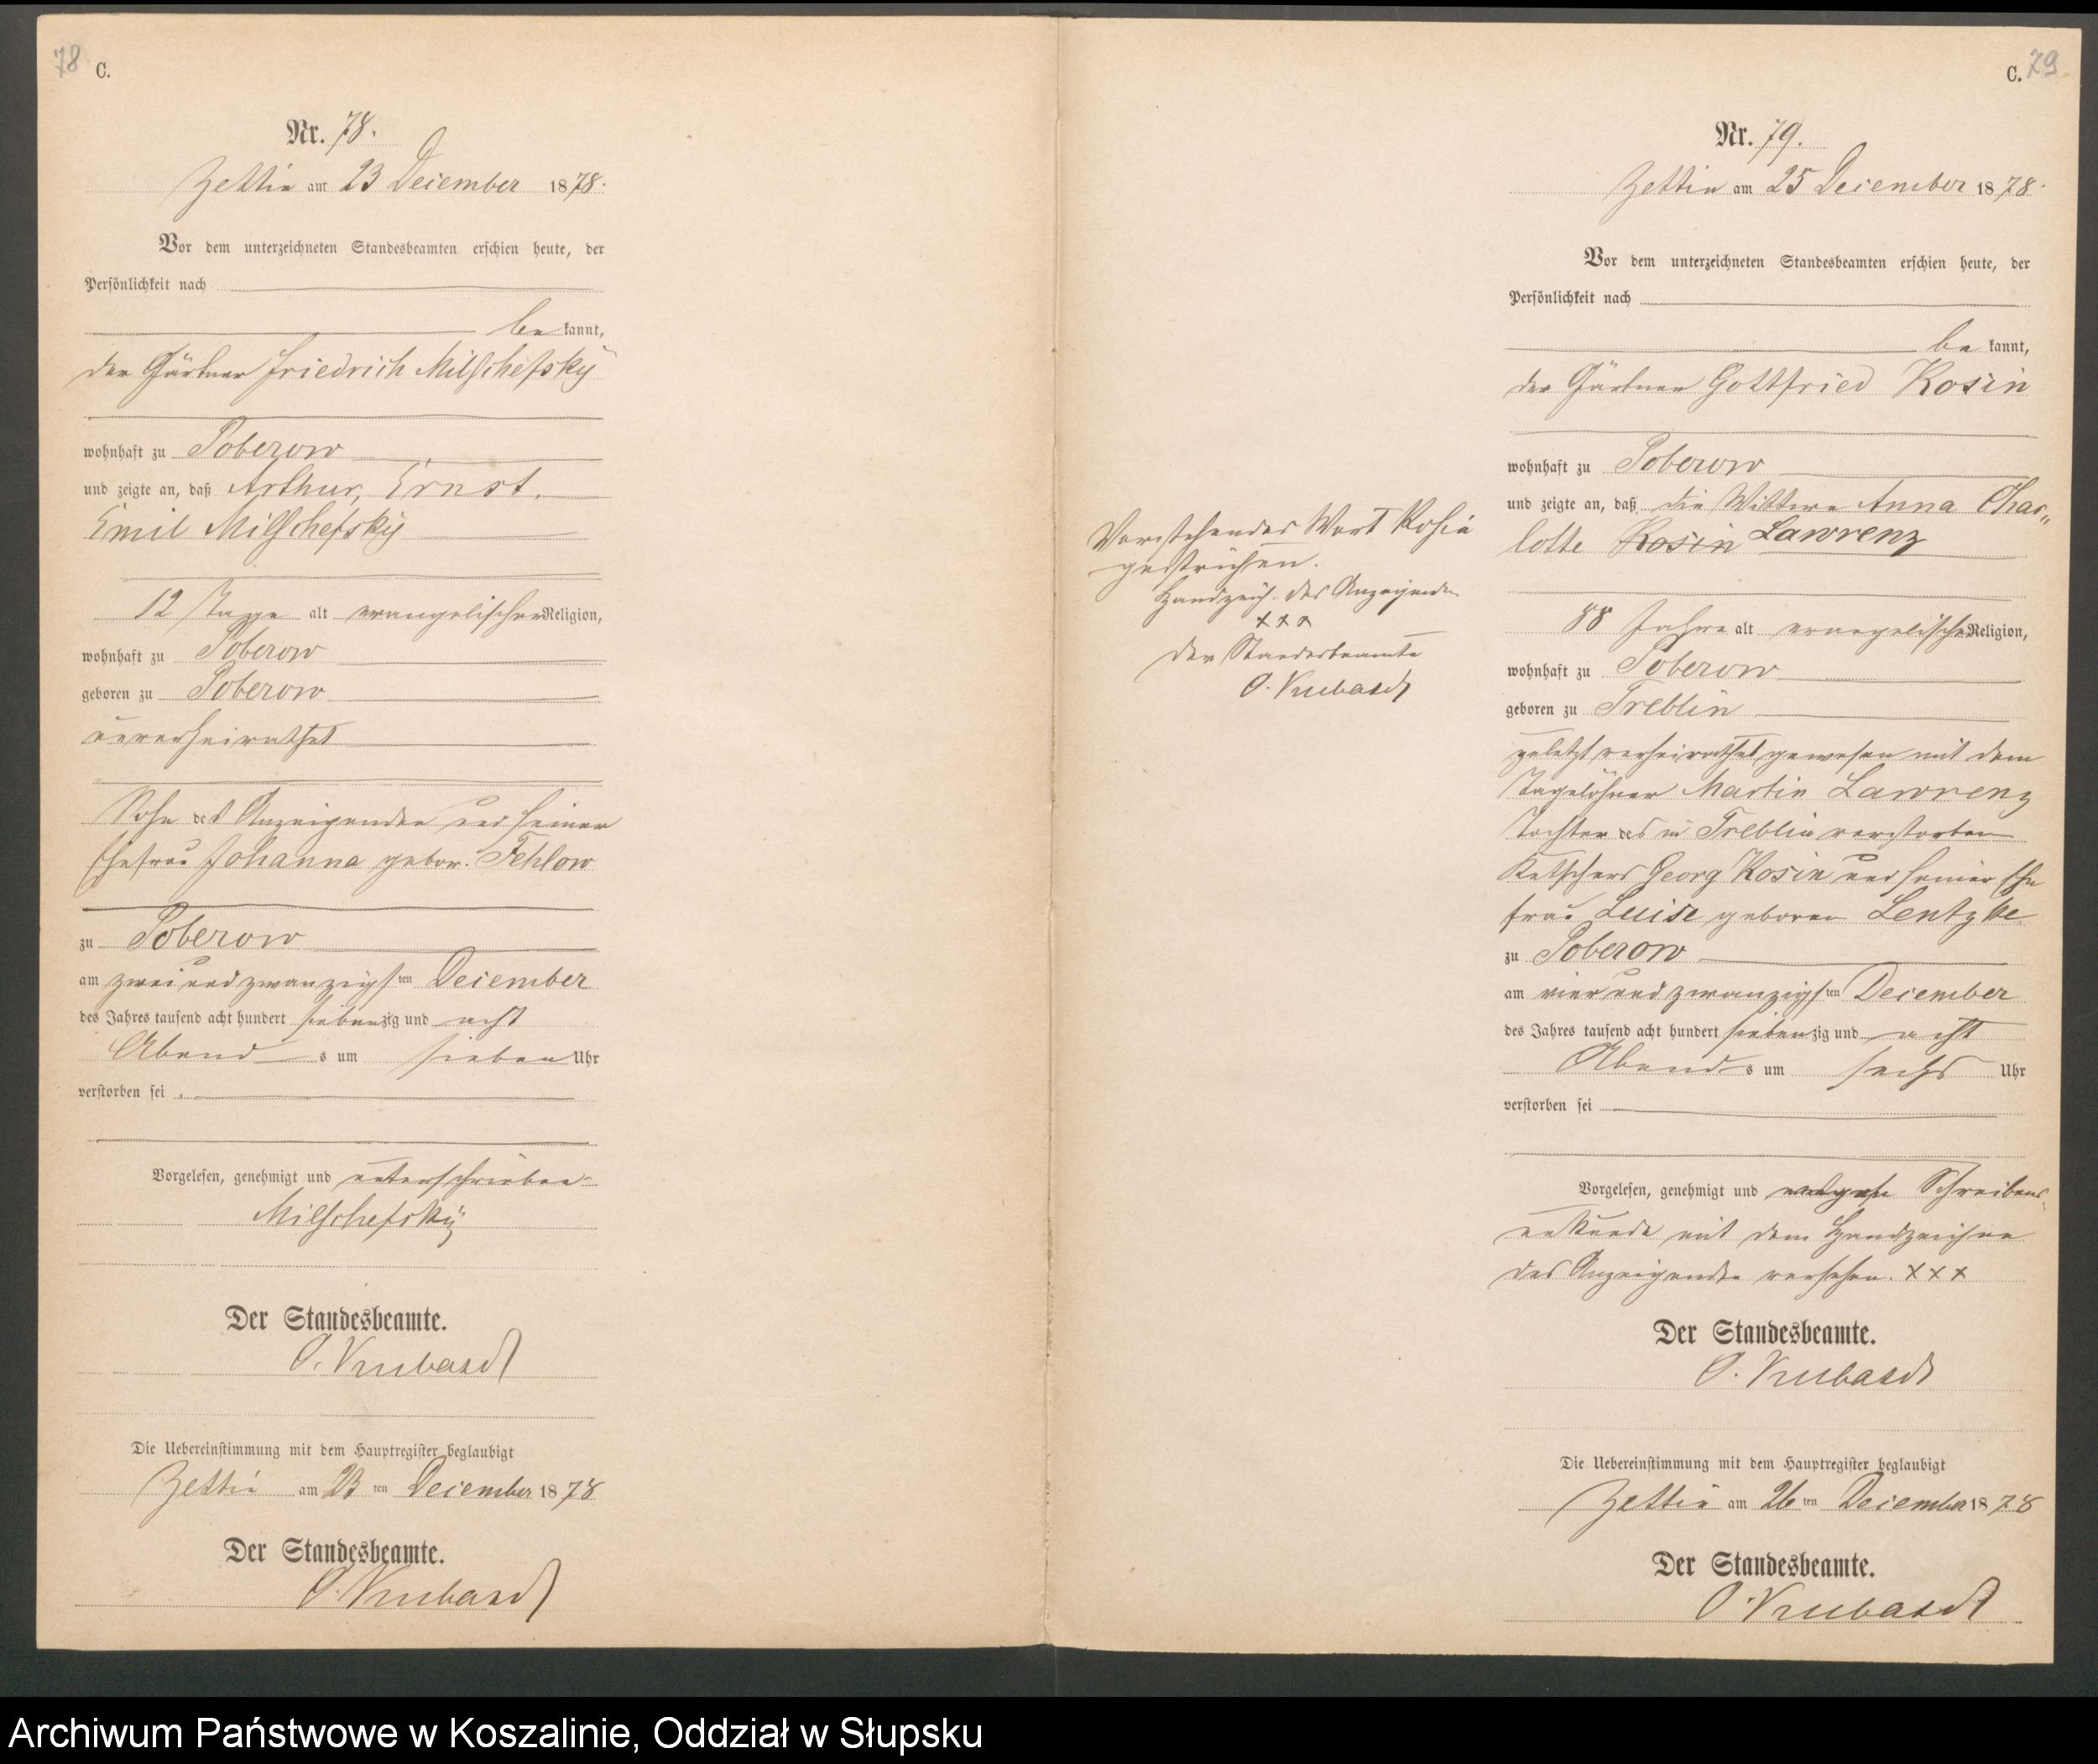 78 C.
Nr. 78.
Zettin am 23 December 1878.
Vor dem unterzeichneten Standesbeamten erschien heute, der
Persönlichkeit nach
be kannt,
der Gärtner Friedrich Milschefsky
wohnhaft zu Poberow
und zeigte an, daß Arthur, Ernst,
Emil Milschefsky
12 Tage alt evangelischer Religion,
wohnhaft zu Poberow
geboren zu Poberow
unverheirathet
Sohn des Anzeigenden und seiner
Ehefrau Johanna gebor. Fehlow
zu Poberow
am zwei und zwanzigsten December
des Jahres tausend acht hundert siebenzig und acht
Abend s um sieben Uhr
verstorben sei.
Vorgelesen, genehmigt und unterschrieben
Milschefsky
Der Standesbeamte.
Die Uebereinstimmung mit dem Hauptregister beglaubigt
Zettin am 23 ten December 1878
Der Standesbeamte.
C. 79
Nr. 79.
Zettin am 25 December 1878.
Vor dem unterzeichneten Standesbeamten erschien heute, der
Persönlichkeit nach
be kannt,
der Gärtner Gottfried Kosin
wohnhaft zu Poberow
und zeigte an, daß die Wittwe Anna Char„
lotte Kosin Lawrenz
88 Jahre alt evangelischer Religion,
wohnhaft zu Poberow
geboren zu Treblin
zuletzt verheirathet gewesen mit dem
Tagelöhner Martin Lawrenz
Tochter des in Treblin verstorben
Georg Kosin und seiner Ehe
frau Luise geboren Lentzke
zu Poberow
am vier und zwanzigsten December
des Jahres tausend acht hundert siebenzig und acht
Abend s um sechs Uhr
verstorben sei
Vorgelesen, genehmigt und wegen Schreibens
unkunde mit dem Handzeichen
des Anzeigenden versehen. x x x
Der Standesbeamte.
Die Uebereinstimmung mit dem Hauptregister beglaubigt
Zettin am 26 ten December 1878
Der Standesbeamte.
Vorstehendes Wort Kosin
gestrichen.
Handzeich. des Anzeigenden
x x x
Der Standesbeamte
Archiwum Państwowe w Koszalinie, Oddział w Słupsku